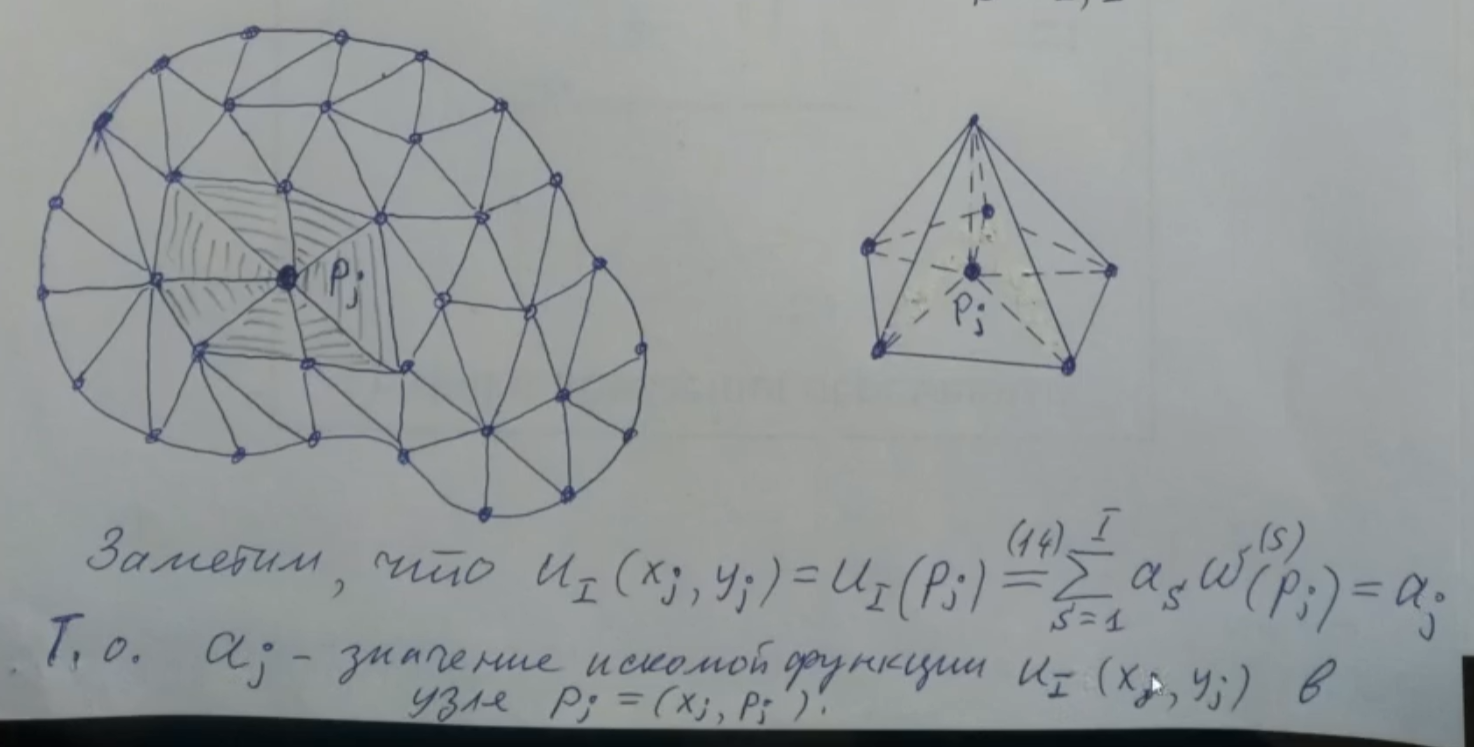 Pj
Pj
Заметим, что u_I(xj, yj) = u_I(Pj) (14)= ∑_{s=1}^{I} a_s ω^(s)(Pj) = aj
Т.о. aj – значение искомой функции u_I(xj, yj) в
узле Pj = (xj, Pj).